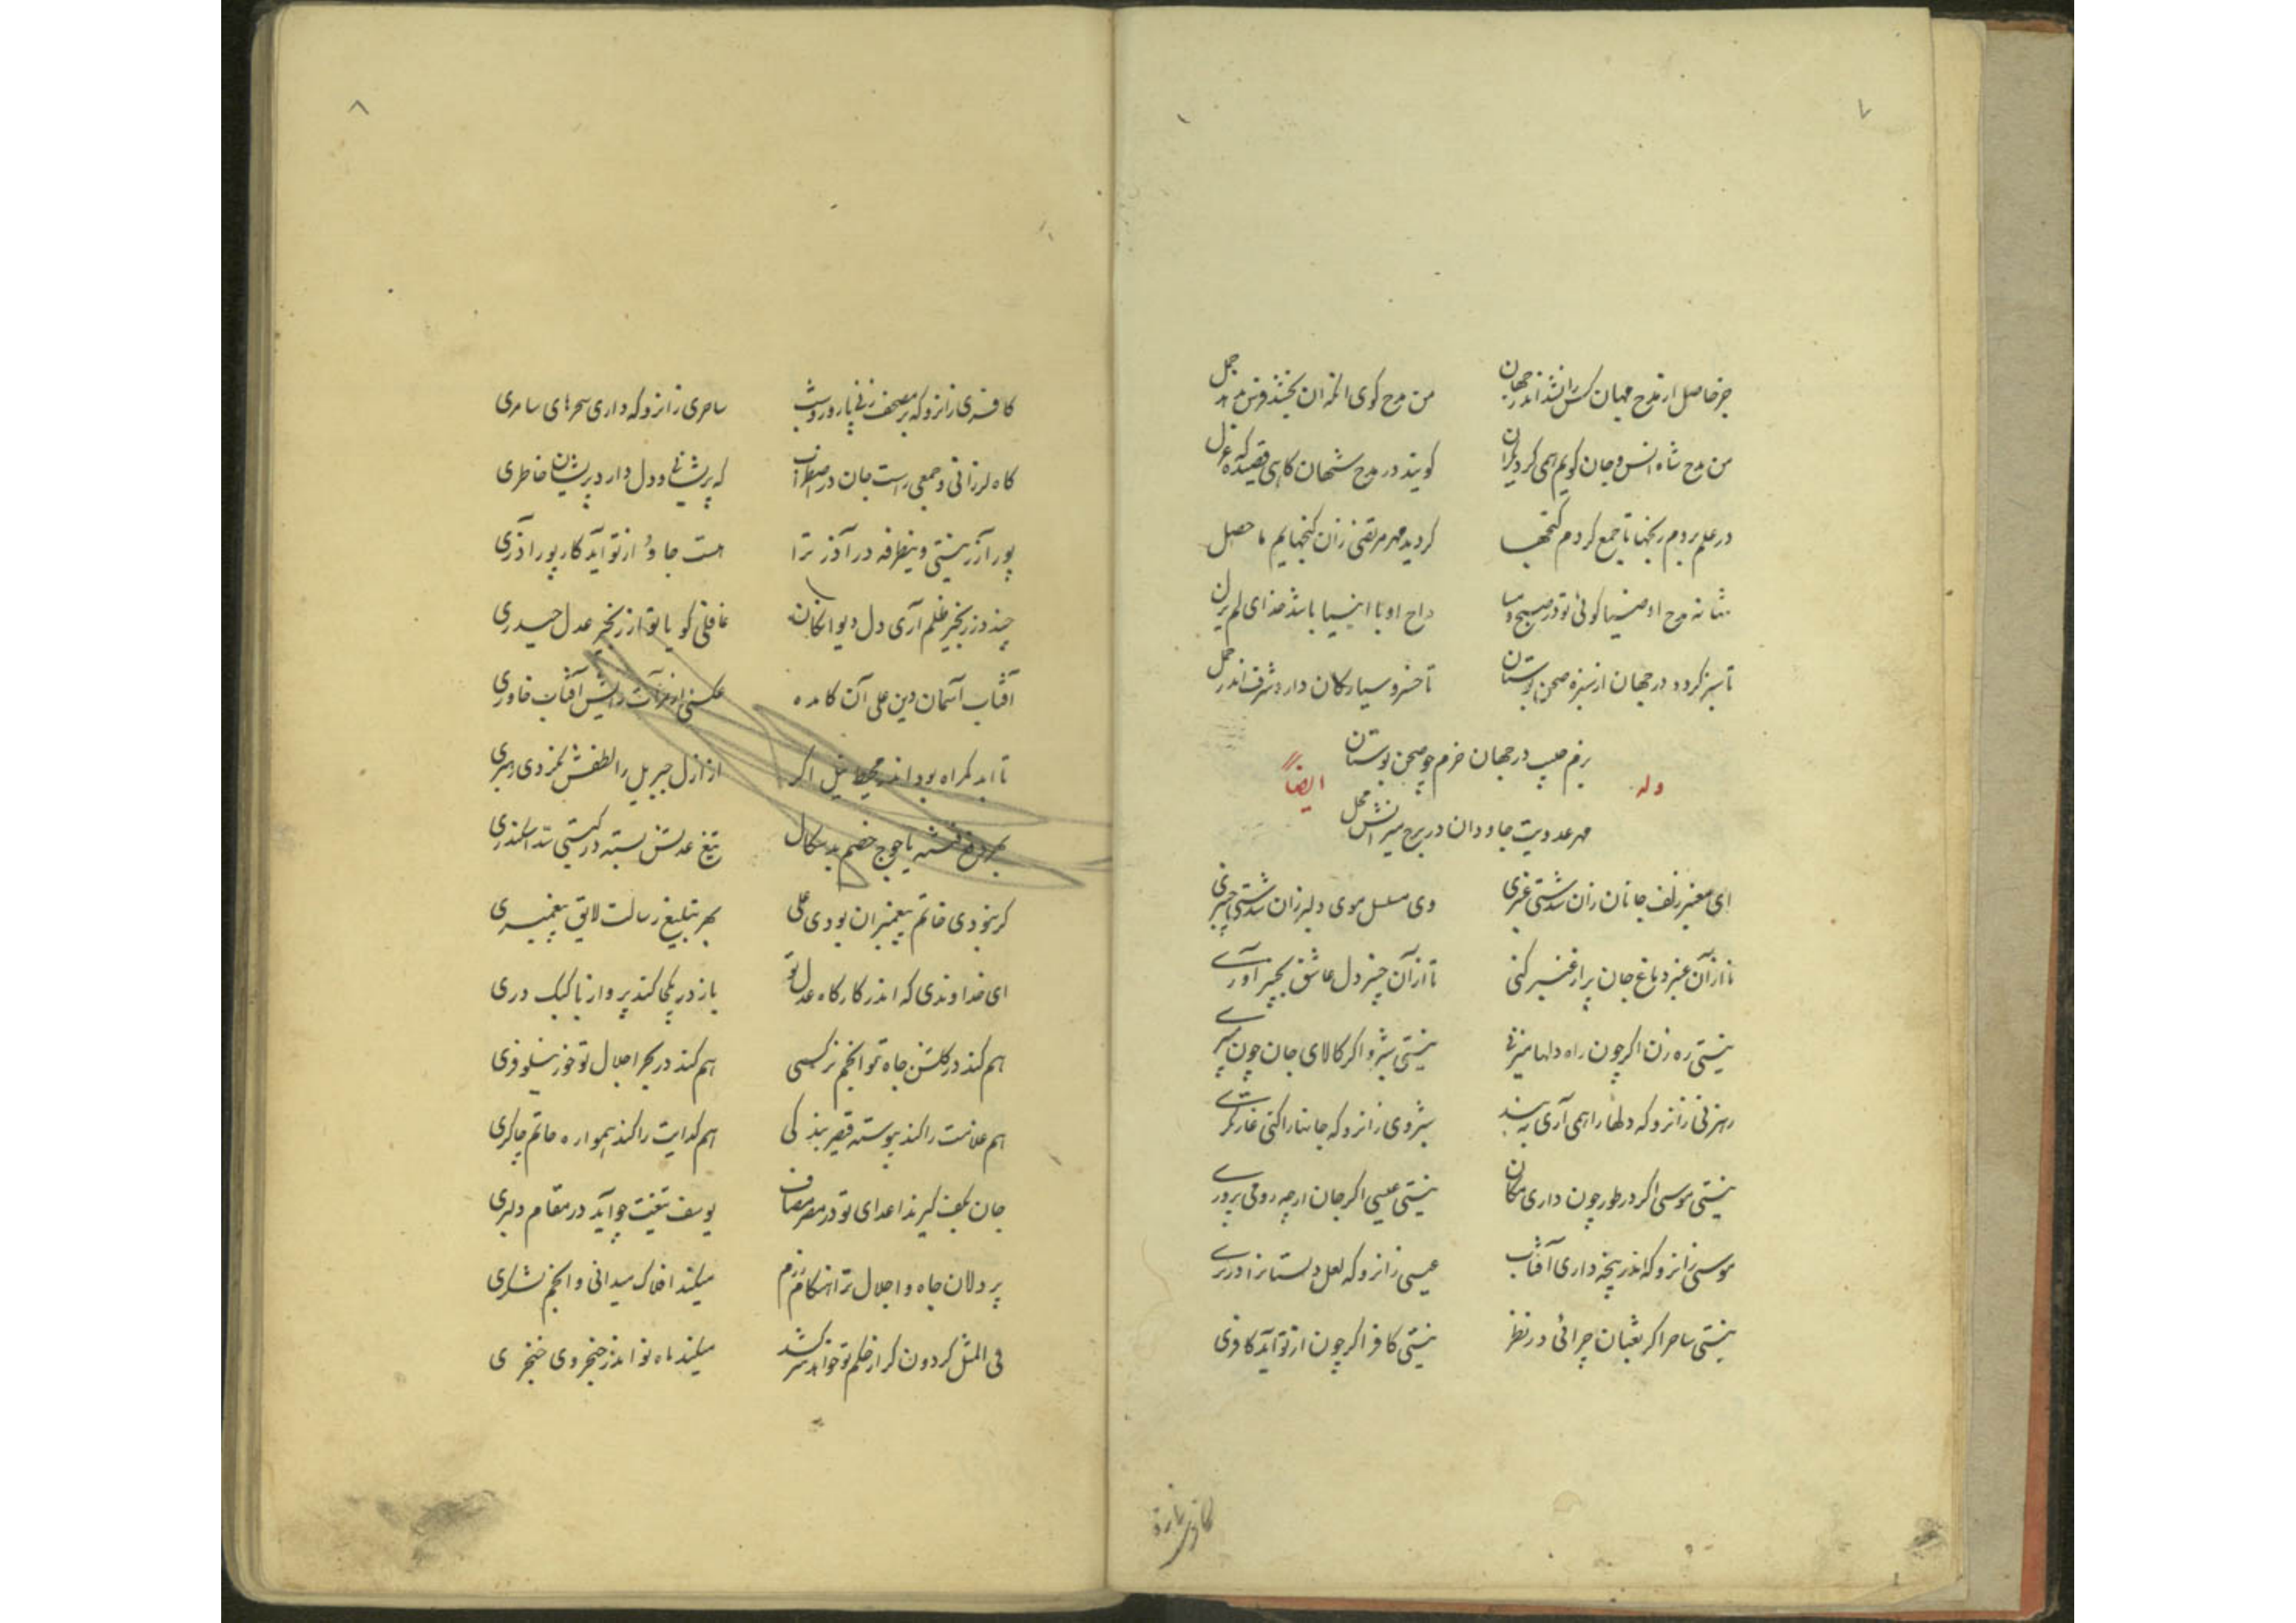 ۷
جز حاصل از مدح مهان کس را نشد اندر جهان من مدح گوی
من مدح شاه انس و جان گویم همی گر دیگران گویند در مدح شهان گاهی قصیده گه غزل
در علم بردم رنجها تا جمع کردم گنجها گردید مهر مرتضی زان گنجهایم ماحصل
مدح اوصیا گوئی تو در صبح و مسا مداح او با انبیا باشد خدای لم یزل
تا سبز گردد در جهان از سبزه صحن بوستان تا خسرو سیارگان دارد شرف اندر حمل
بزم در جهان خرم چو صحن بوستان
وله ایضاً
مهر عدویت جاودان در برج میزانش محل
ای معنبر زلف جانان زان سرشتی عنبری وی مسلسل موی دلبر زان سرشتی چنبری
تا از آن عنبر دماغ جان پر از عنبر کنی تا از آن چنبر دل عاشق بچنبر آوری
نیستی ره زن اگر چون راه دلها میزنی نیستی شبرو اگر کالای جان چون میبری
رهزنی زانرو که دلها را همی آری به بند شبروی زانرو که جانها را کنی غارتگری
نیستی موسی اگر در طور چون داری مکان نیستی عیسی اگر جان از چه رو می پروری
موسی زانرو که اندر پنجه داری آفتاب عیسی زانرو که لعل دلستانرا در بری
نیستی ساحر اگر ثعبان چرائی در نظر نیستی کافر اگر چون از تو آید کافری
کافری زانرو
۸
کافری زانرو که بر مصحف زنی پا روز و شب ساحری زانرو که داری سحرهای سامری
گاه لرزانی و جمعی راست جان در اضطراب گه پریشانی و دل دارد پریشان خاطری
پور آزر نیستی وینطرفه در آذر ترا هست جا و از تو آید کار پور آذری
چند در زنجیر ظلم آری دل دیوانگان غافلی گویا تو از زنجیر عدل حیدری
آفتاب آسمان دین علی آن کامده عکسی از مرآت رایش آفتاب خاوری
تا ابد گمراه بود اندر محیط نیل اگر از ازل جبریل را لطفش نکردی رهبری
بهر دفع فتنه یاجوج خصم بدسگال تیغ عدلش بسته در گیتی سد اسکندری
گر نبودی خاتم پیغمبران بودی علی بهر تبلیغ رسالت لایق پیغمبری
ای خداوندی که اندر کارگاه عدل تو باز در یکجا کند پرواز با کبک دری
هم کند در گلشن جاه تو انجم نرگسی هم کند در بحر اجلال تو خور نیلوفری
هم غلامت را کند پیوسته قیصر بندگی هم گدایت را کند همواره حاتم چاکری
جان بکف گیرند اعدای تو در مصر مصاف یوسف تیغت چو آید در مقام دلبری
پردلان جاه و اجلال ترا هنگام رزم میکند افلاک میدانی و انجم لشکری
فی المثل گردون گر از حکم تو خواهد سرکشد میکند ماه نو اندر حنجر وی خنجری